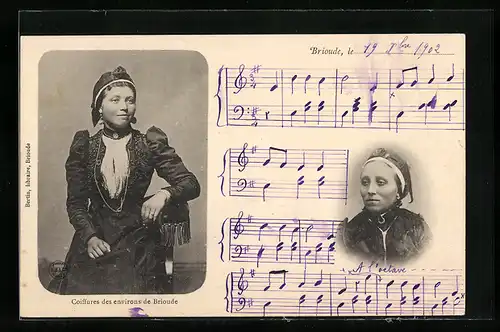 Brioude, le 19 Xbre 1902
Bertin, libraire, Brioude
A l'octave
Coiffures des environs de Brioude